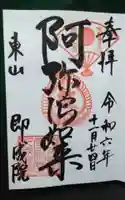 奉拝
令和六年
十一月十七日
阿弥陀如来
東山
即成院